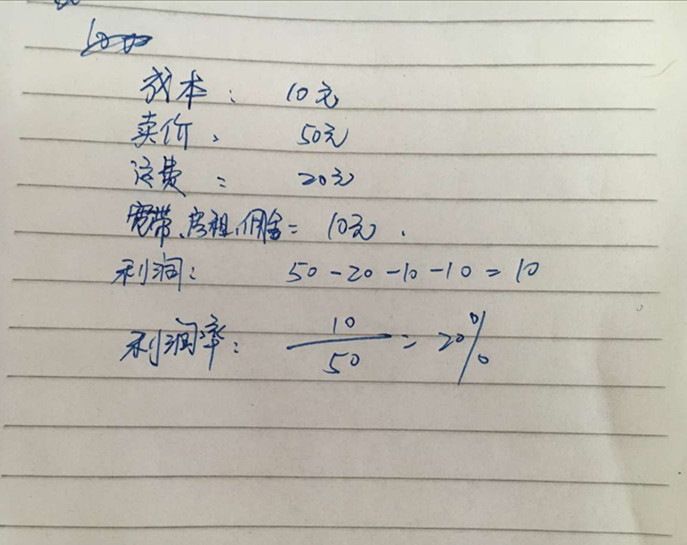 成本: 10元
卖价: 50元
运费: 20元
宽带、房租、佣金= 10元.
利润: 50-20-10-10=10
利润率: 10/50 = 20%